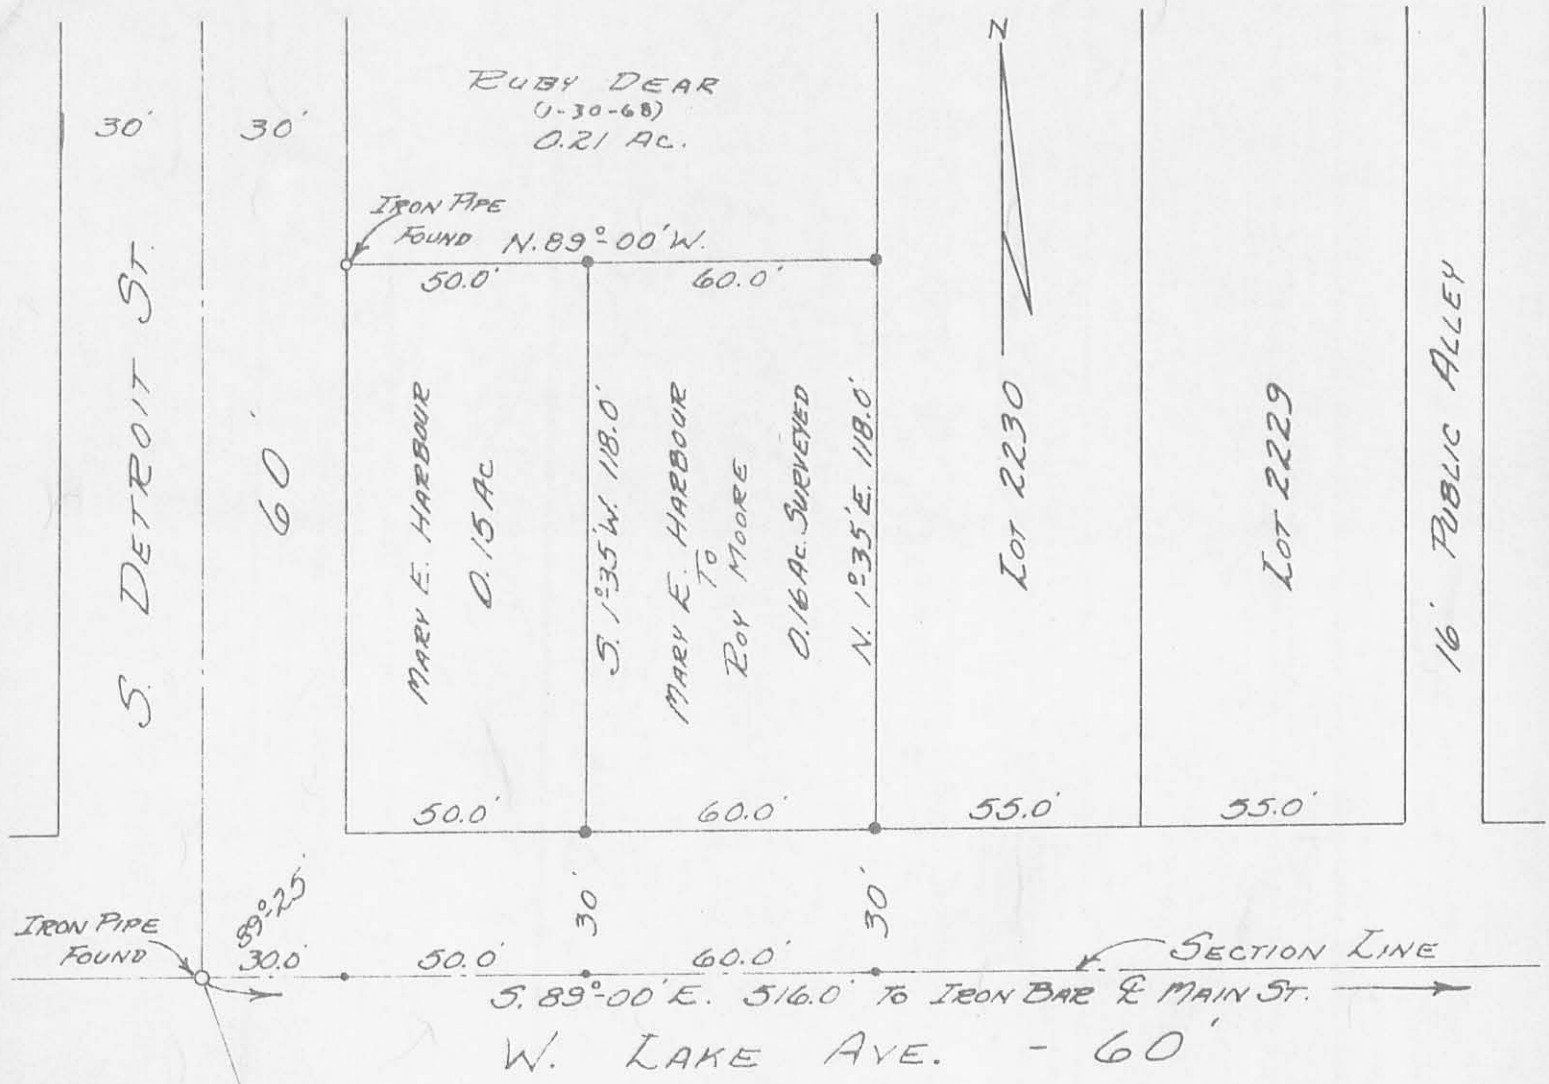 N
RUBY DEAR
(1-30-68)
0.21 AC.
30'
30'
IRON PIPE
FOUND
N. 89°-00' W.
50.0'
60.0'
S. DETROIT ST.
60'
MARY E. HARBOUR
0.15 AC
S. 1°35' W. 118.0'
MARY E. HARBOUR
TO
ROY MOORE
0.16 AC. SURVEYED
N. 1°35' E. 118.0'
LOT 2230
LOT 2229
16' PUBLIC ALLEY
50.0'
60.0'
55.0'
55.0'
89°-25'
30'
30'
IRON PIPE
FOUND
30.0'
50.0'
60.0'
SECTION LINE
S. 89°-00' E. 516.0' TO IRON BAR ℄ MAIN ST.
W. LAKE AVE. - 60'